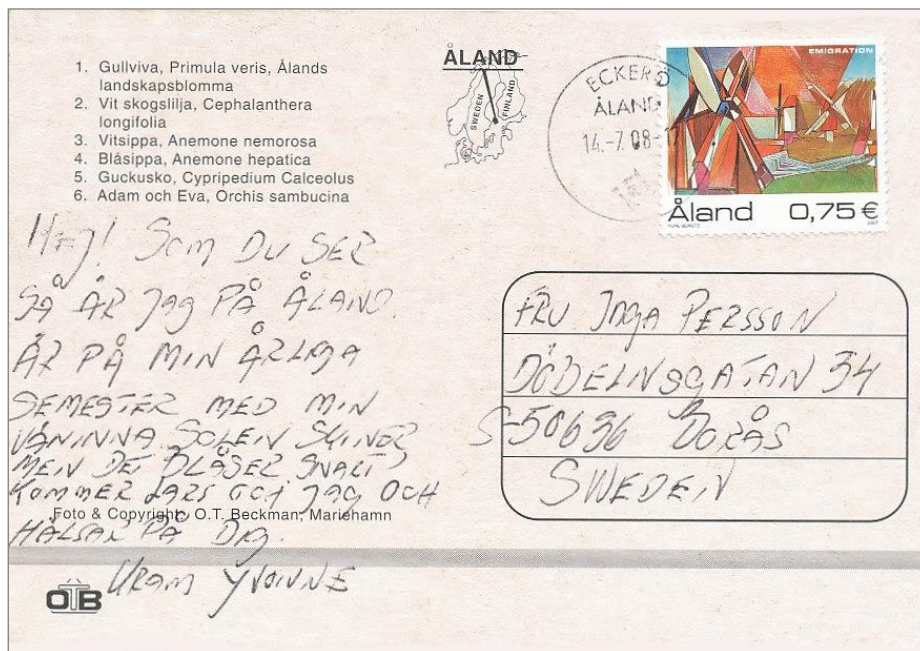 1. Gullviva, Primula veris, Ålands
landskapsblomma
2. Vit skogslilja, Cephalanthera
longifolia
3. Vitsippa, Anemone nemorosa
4. Blåsippa, Anemone hepatica
5. Guckusko, Cypripedium Calceolus
6. Adam och Eva, Orchis sambucina
ÅLAND
SWEDEN
FINLAND
ECKERÖ
ÅLAND
14.-7.08-
EMIGRATION
Åland 0,75 €
2007
HEJ! SOM DU SER
SÅ ÄR JAG PÅ ÅLAND.
ÄR PÅ MIN ÅRLIGA
SEMESTER MED MIN
VÄNINNA SOLEN SKINER
MEN DET BLÅSER SNART
KOMMER LARS OCH JAG OCH
Foto & Copyright: O.T. Beckman, Mariehamn
HÄLSAR PÅ DIG.
KRAM YVONNE
OTB
FRU INGA PERSSON
DÖBELNSGATAN 34
S-50636 BORÅS
SWEDEN